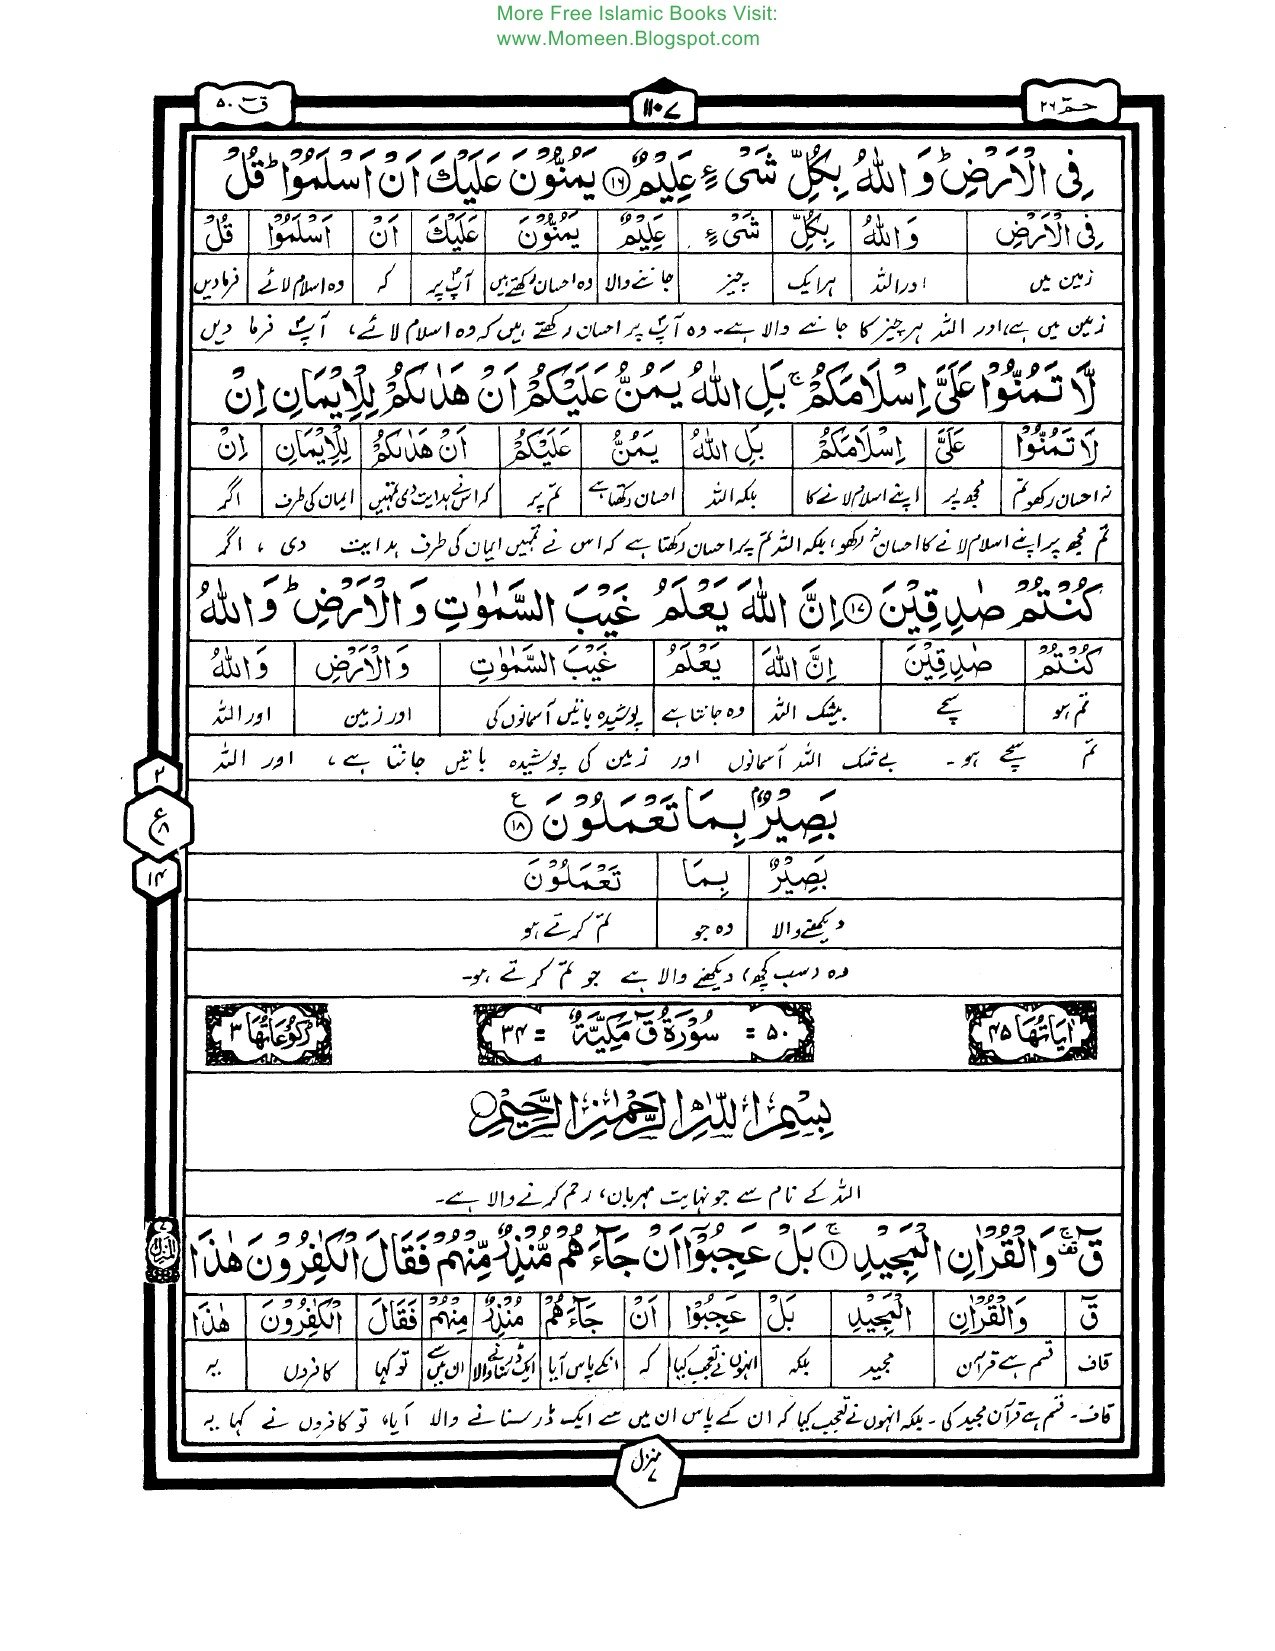 More Free Islamic Books Visit:
www.Momeen.Blogspot.com
حٰمٓ ۲۶
۱۱۰۷
قٓ ۵۰
فِی الْاَرْضِ ؕ وَ اللّٰہُ بِکُلِّ شَیْءٍ عَلِیْمٌ ﴿۱۶﴾ یَمُنُّوْنَ عَلَیْکَ اَنْ اَسْلَمُوْا ؕ قُلْ
فِی الْاَرْضِ وَاللّٰہُ بِکُلِّ شَیْءٍ عَلِیْمٌ یَمُنُّوْنَ عَلَیْکَ اَنْ اَسْلَمُوْا قُلْ
زمین میں اور اللہ ہر ایک چیز جاننے والا وہ احسان رکھتے ہیں آپؐ پر کہ وہ اسلام لائے فرما دیں
زمین میں ہے، اور اللہ ہر چیز کا جاننے والا ہے۔ وہ آپؐ پر احسان رکھتے ہیں کہ وہ اسلام لائے، آپؐ فرما دیں
لَّا تَمُنُّوْا عَلَیَّ اِسْلَامَکُمْ ۚ بَلِ اللّٰہُ یَمُنُّ عَلَیْکُمْ اَنْ ہَدٰىکُمْ لِلْاِیْمَانِ اِنْ
لَا تَمُنُّوْا عَلَیَّ اِسْلَامَکُمْ بَلِ اللّٰہُ یَمُنُّ عَلَیْکُمْ اَنْ ہَدٰىکُمْ لِلْاِیْمَانِ اِنْ
نہ احسان رکھو تم مجھ پر اپنے اسلام لانے کا بلکہ اللہ احسان رکھتا ہے تم پر کہ اس نے ہدایت دی تمہیں ایمان کی طرف اگر
تم مجھ پر اپنے اسلام لانے کا احسان نہ رکھو، بلکہ اللہ تم پر احسان رکھتا ہے کہ اس نے تمہیں ایمان کی طرف ہدایت دی، اگر
کُنْتُمْ صٰدِقِیْنَ ﴿۱۷﴾ اِنَّ اللّٰہَ یَعْلَمُ غَیْبَ السَّمٰوٰتِ وَ الْاَرْضِ ؕ وَ اللّٰہُ
کُنْتُمْ صٰدِقِیْنَ اِنَّ اللّٰہَ یَعْلَمُ غَیْبَ السَّمٰوٰتِ وَالْاَرْضِ وَاللّٰہُ
تم ہو سچے بیشک اللہ وہ جانتا ہے پوشیدہ باتیں آسمانوں کی اور زمین اور اللہ
تم سچے ہو۔ بے شک اللہ آسمانوں اور زمین کی پوشیدہ باتیں جانتا ہے، اور اللہ
۲
بَصِیْرٌۢ بِمَا تَعْمَلُوْنَ ﴿۱۸﴾ ع
ع ۸
بَصِیْرٌ بِمَا تَعْمَلُوْنَ
۱۴
دیکھنے والا وہ جو تم کرتے ہو
وہ (سب کچھ) دیکھنے والا ہے جو تم کرتے ہو۔
اٰیَاتُهَا ۴۵
۵۰ = سُوْرَۃُ قٓ مَکِّیَّۃٌ = ۳۴
رُکُوْعَاتُهَا ۳
بِسْمِ اللّٰہِ الرَّحْمٰنِ الرَّحِیْمِ
اللہ کے نام سے جو نہایت مہربان، رحم کرنے والا ہے۔
قٓ ۚ وَ الْقُرْاٰنِ الْمَجِیْدِ ﴿۱﴾ بَلْ عَجِبُوْۤا اَنْ جَآءَہُمْ مُّنْذِرٌ مِّنْہُمْ فَقَالَ الْکٰفِرُوْنَ ہٰذَا
قٓ وَالْقُرْاٰنِ الْمَجِیْدِ بَلْ عَجِبُوْا اَنْ جَآءَہُمْ مُنْذِرٌ مِنْہُمْ فَقَالَ الْکٰفِرُوْنَ ہٰذَا
قاف قسم ہے قرآن مجید بلکہ انہوں نے تعجب کیا کہ انکے پاس آیا ایک ڈر سنانے والا ان میں سے تو کہا کافروں یہ
قاف۔ قسم ہے قرآن مجید کی۔ بلکہ انہوں نے تعجب کیا کہ ان کے پاس ان میں سے ایک ڈر سنانے والا آیا، تو کافروں نے کہا یہ
منزل ۷